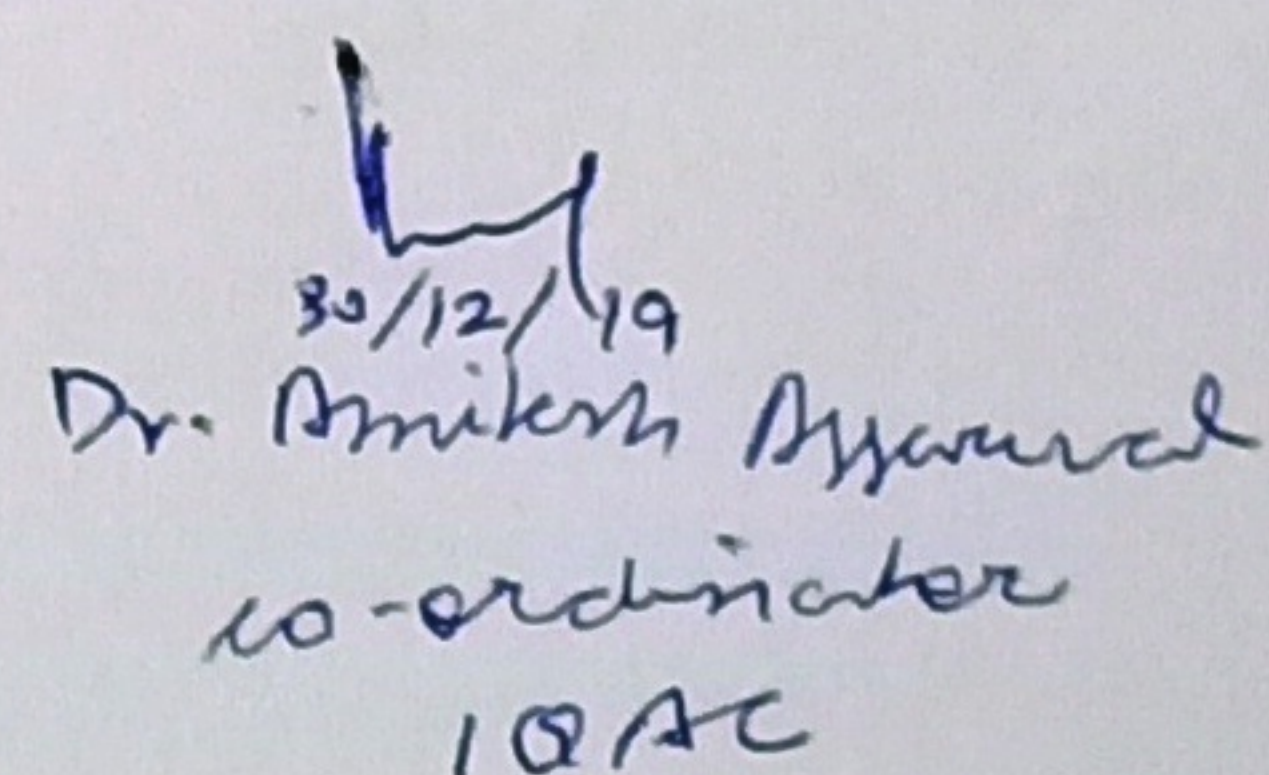 30/12/19
Dr. Amitesh Aggarwal
co-ordinator
IQAC